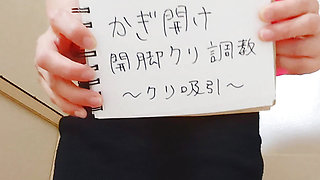 かぎ開け
開脚クリ調教
〜クリ吸引〜